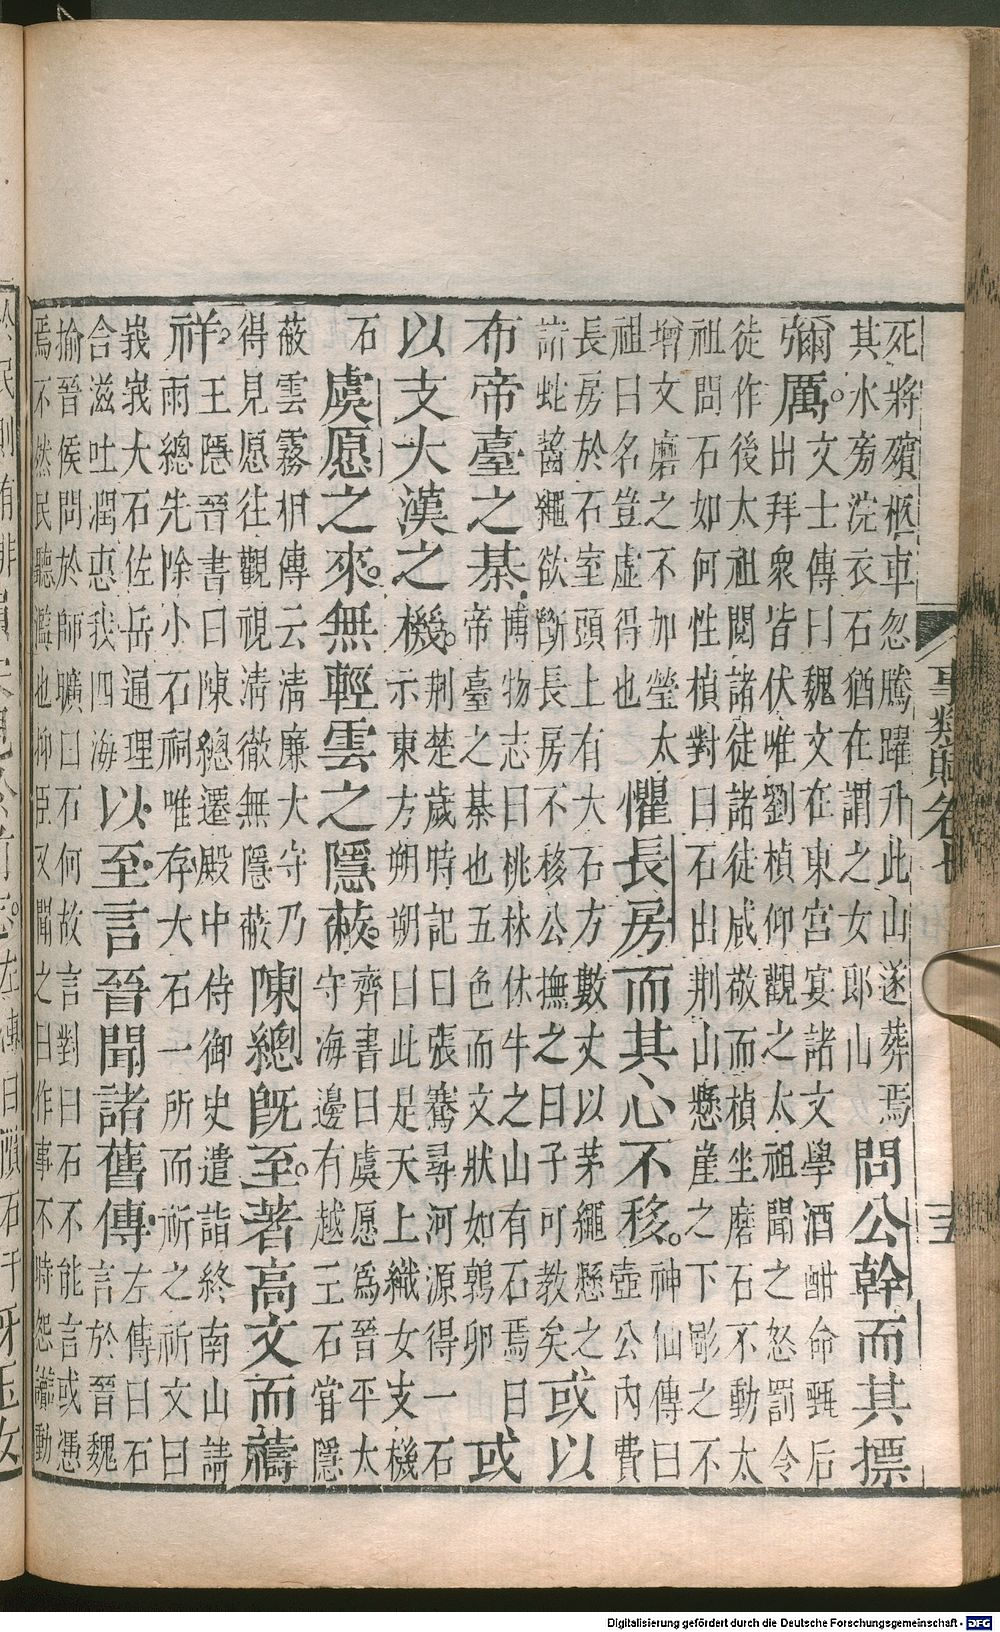 事類賦卷七
死將殯柩車忽騰躍升此山遂葬焉
其水旁浣衣石猶在謂之女郎山
問公幹而其摽
彌厲。
文士傳曰魏文在東宮宴諸文學酒酣命甄后
出拜衆皆伏唯劉楨仰觀之太祖聞之怒罰令
徒作後太祖閱諸徒諸徒咸敬而楨坐磨石不動太
祖問石如何性楨對曰石出荊山懸崖之下彫之不
增文磨之不加瑩太
祖曰名豈虛得也
懼長房而其心不移。
神仙傳曰
壺公內費
長房於石室頭上有大石方數丈以茅繩懸之
諸蛇齧繩欲斷長房不移公撫之曰子可教矣
或以
布帝臺之棊。
博物志曰桃林休牛之山有石焉曰
帝臺之棊也五色而文狀如鶉卵
或
以支大漢之機。
荊楚歲時記曰張騫尋河源得一石
示東方朔朔曰此是天上織女支機
石
虞愿之來。無輕雲之隱蔽。
齊書曰虞愿爲晉平太
守海邊有越王石嘗隱
蔽雲霧相傳云清廉大守乃
得見愿往觀視清徹無隱蔽
陳總旣至。著高文而禱
祥。
王隱晉書曰陳總遷殿中侍御史遣詣終南山請
雨總先除小石祠唯存大石一所而祈之祈文曰
峩峩大石佐岳通理
含滋吐潤惠我四海
以至言晉聞諸舊傳。
左傳曰石
言於晉魏
揄晉侯問於師曠曰石何故言對曰石不能言或憑
焉不然民聽濫也抑臣又聞之曰作事不時怨讟動
Digitalisierung gefördert durch die Deutsche Forschungsgemeinschaft - DFG